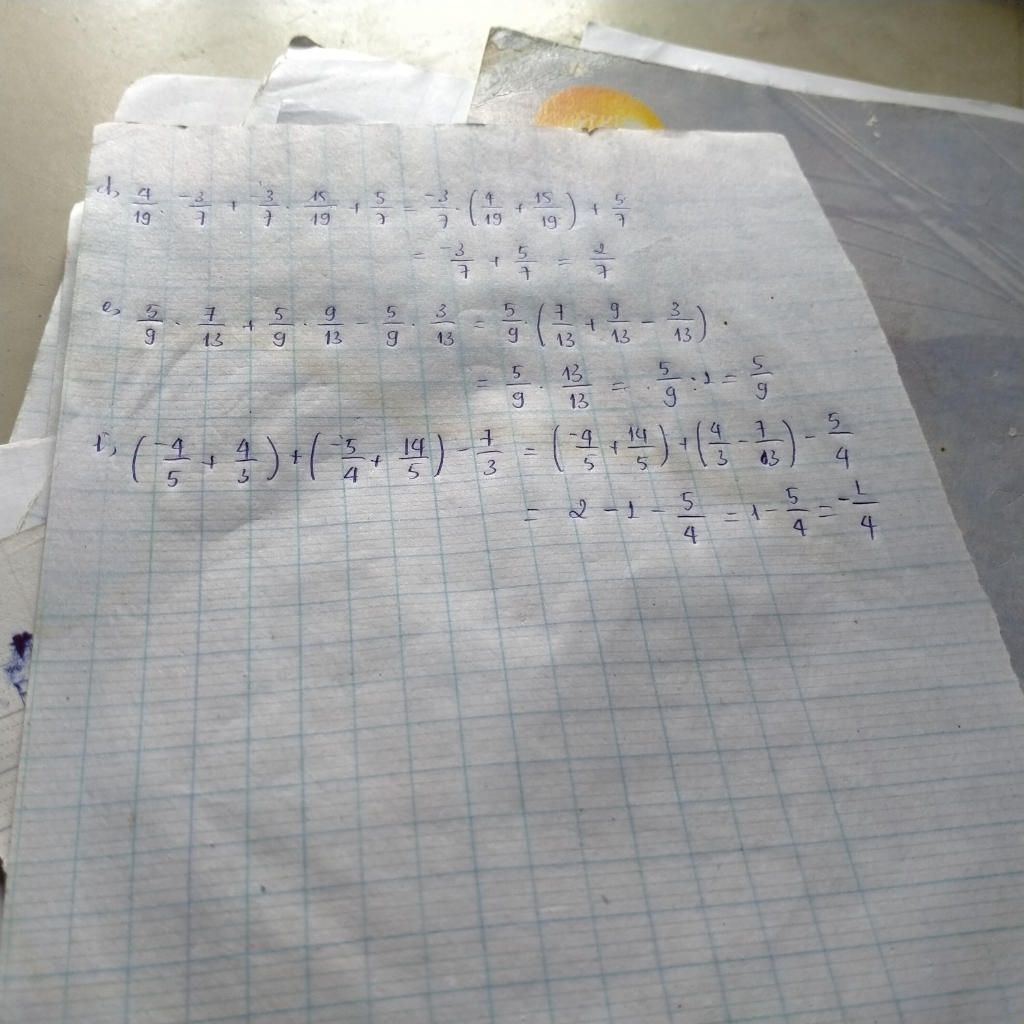 d) 4/19 · -3/7 + -3/7 · 15/19 + 5/7 = -3/7 · (4/19 + 15/19) + 5/7
= -3/7 + 5/7 = 2/7
e) 5/9 · 7/13 + 5/9 · 9/13 - 5/9 · 3/13 = 5/9 · (7/13 + 9/13 - 3/13)
= 5/9 · 13/13 = 5/9 : 1 = 5/9
f) (-4/5 + 4/3) + (-5/4 + 14/5) - 7/3 = (-4/5 + 14/5) + (4/3 - 7/3) - 5/4
= 2 - 1 - 5/4 = 1 - 5/4 = -1/4